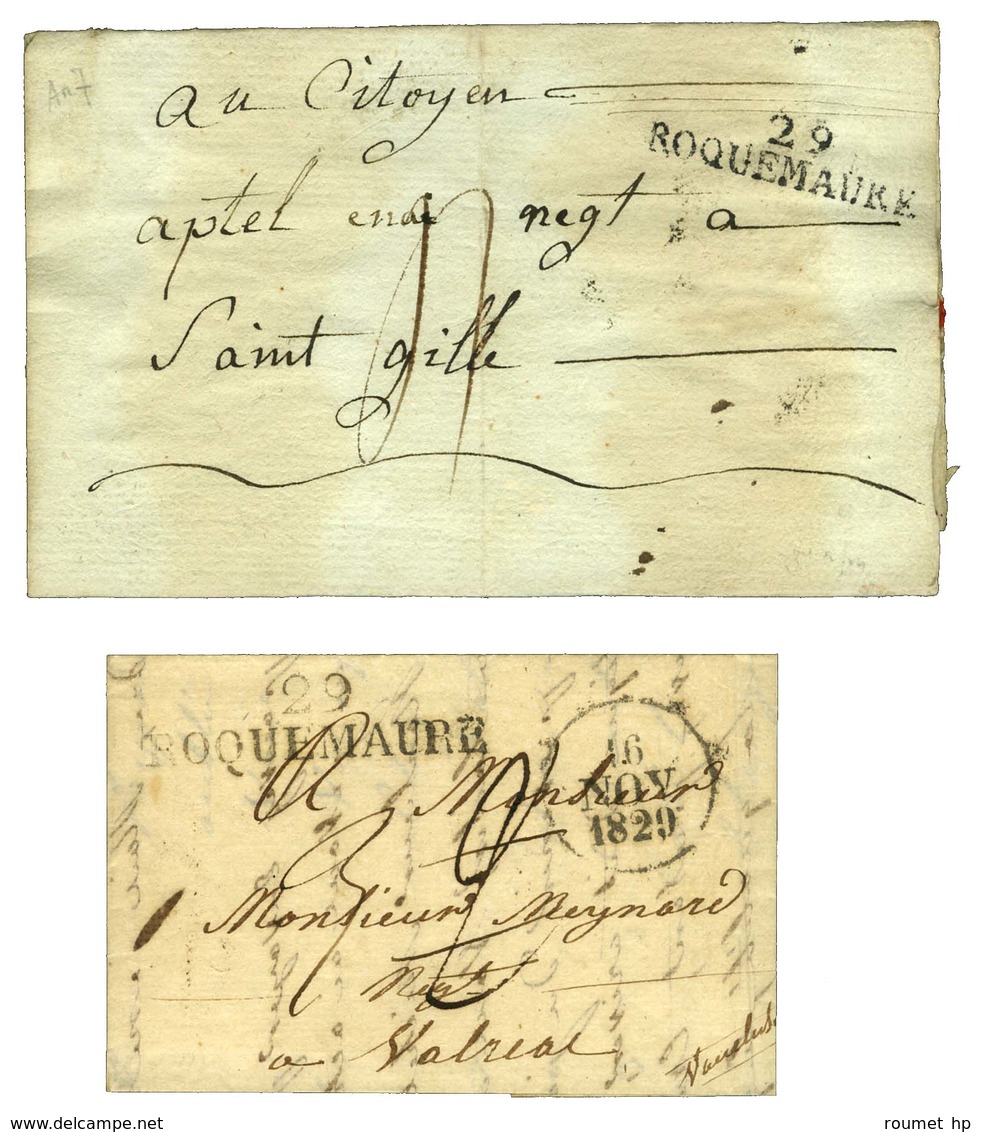 An 7
au Citoyen
29
ROQUEMAURE
aptel negt a
Saint gille
29
ROQUEMAURE
16
NOV
1829
A Monsieur
Monsieur Meynard
Negt
a Valreas
Vaucluse
delcampe.net
roumet hp